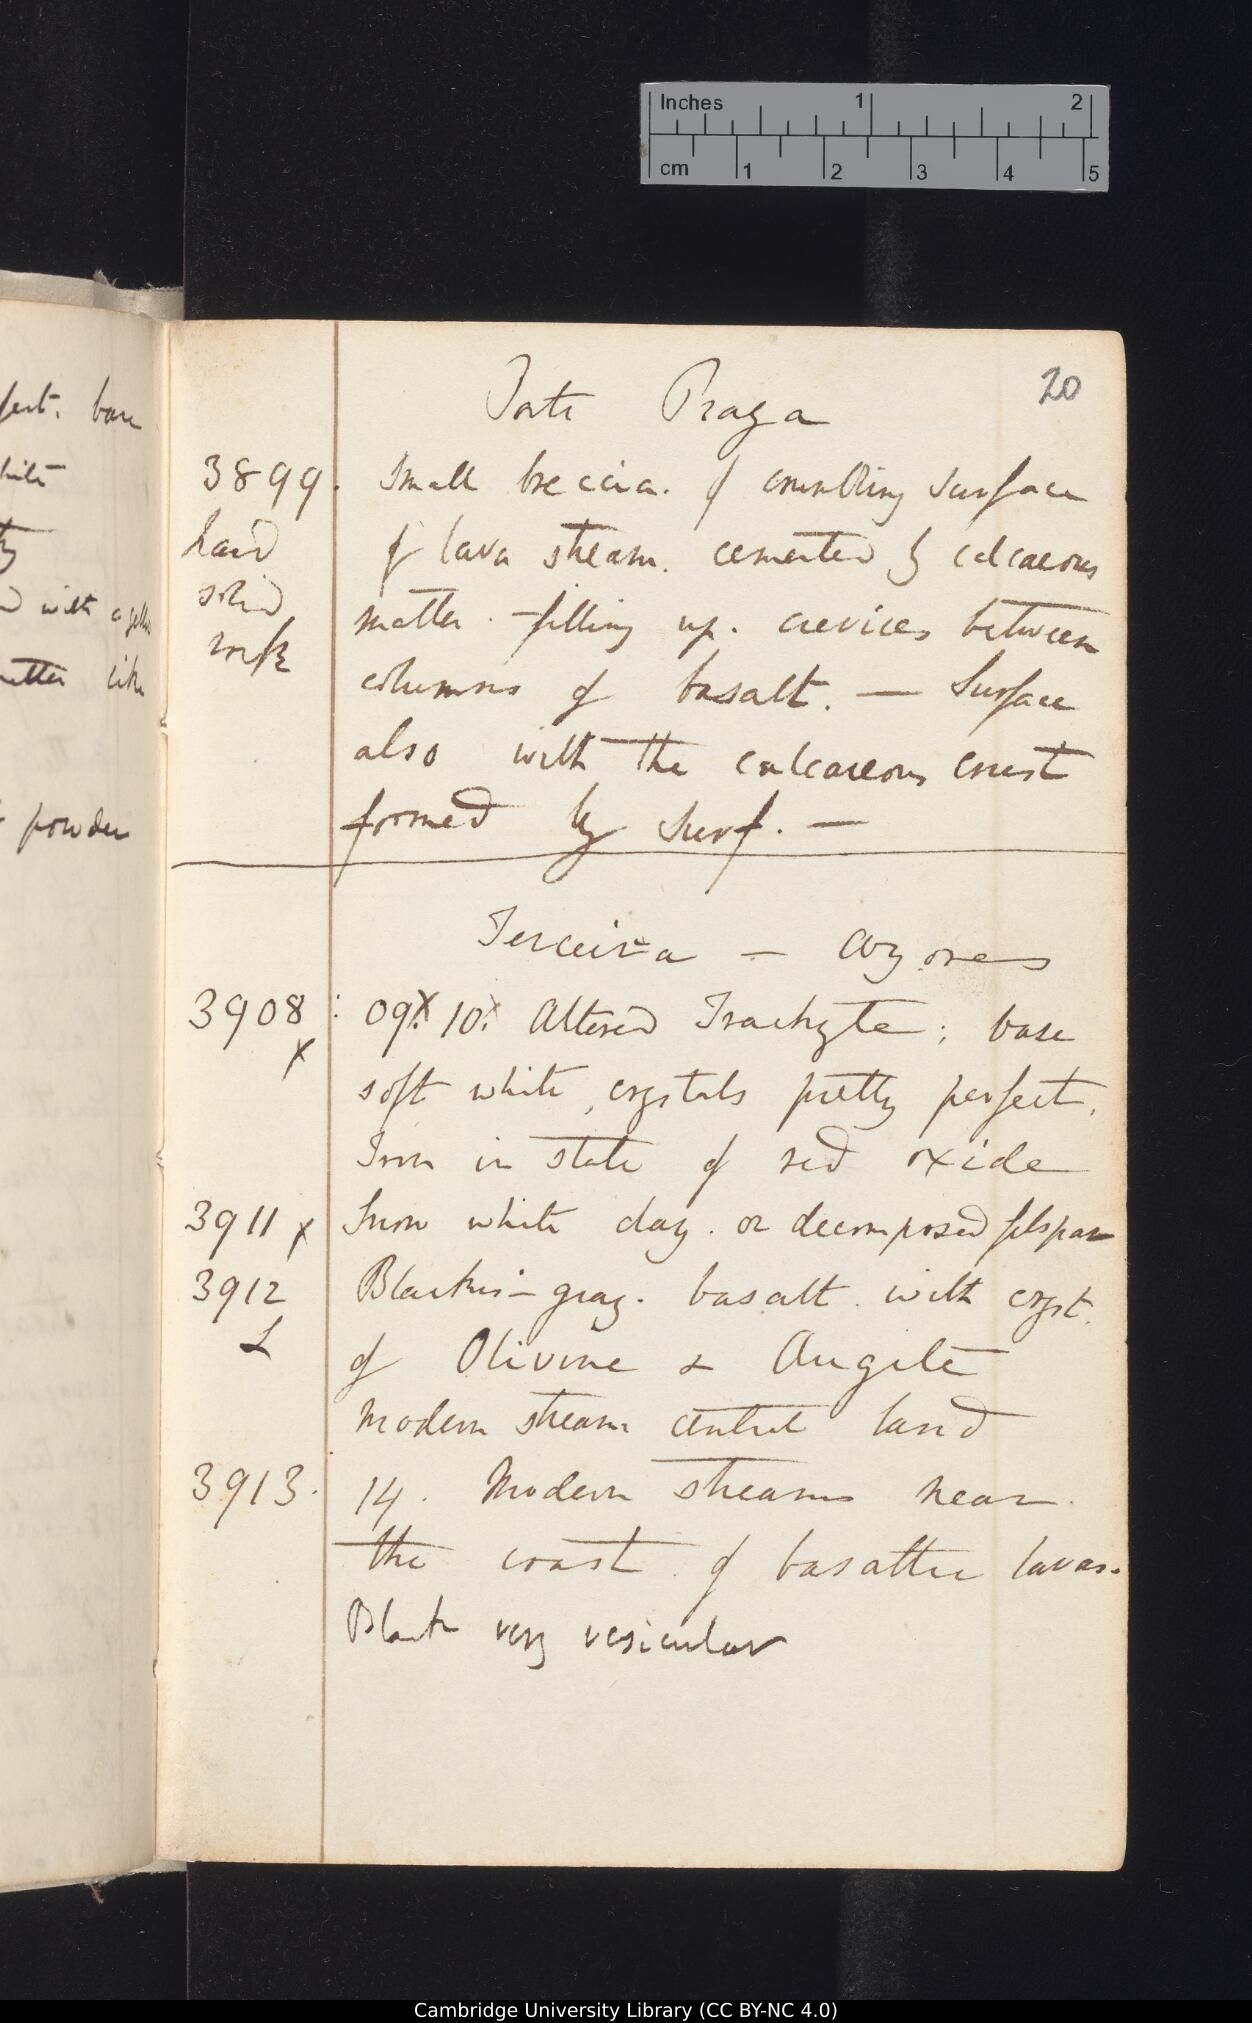 Inches 1 2
cm 1 2 3 4 5
fect. base
white
ty
d with a yello
matter like
powder
20
Porto Praya
3899. Small breccia. of crumbling surface
hard of lava stream. cemented by calcareous
solid matter. filling up. crevices between
rock columns of basalt. — Surface
also with the calcareous crust
formed by surf. —
Terceira — Azores
3908 : 09X. 10X. Altered Trachyte; base
X soft white, crystals pretty perfect.
Iron in state of red oxide
3911 X Snow white clay. or decomposed felspar
3912 Blackish-gray. basalt. with cryst.
L of Olivine & Augite
Modern stream central land
3913. 14. Modern streams near
the coast. of basaltic lavas.
Black very vesicular
Cambridge University Library (CC BY-NC 4.0)